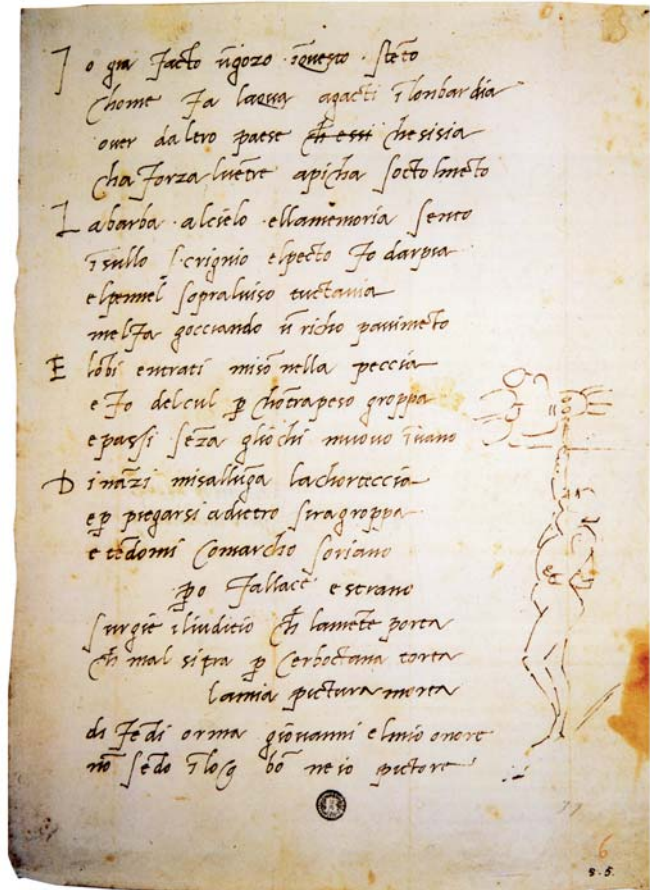 I o gia facto ũgozo ĩquesto stẽto
chome fa laqua agacti ĩ lonbardia
over daltro paese ch essi chesisia
cha forza luẽtre apicha socto lmẽto
L abarba alcielo ellamemoria sento
ĩsullo scrignio elpecto fo darpia
elpennel sopraluiso tuctauia
melfa gocciando ũ richo pauimẽto
E lõbi entrati misõ nella peccia
e fo delcul p chõtrapeso groppa
epassi sẽza gliochi muouo ĩuano
D inãzi misallũga lachorteccia
ep piegarsi adietro siragroppa
e tẽdomi comarcho soriano
po fallace e strano
surgie iliuditio ch lamẽte porta
ch mal sipra p cerboctana torta
lamia pictura morta
di fẽdi orma giouanni elmio onore
nõ sẽdo ĩ log bõ ne io pictore
6